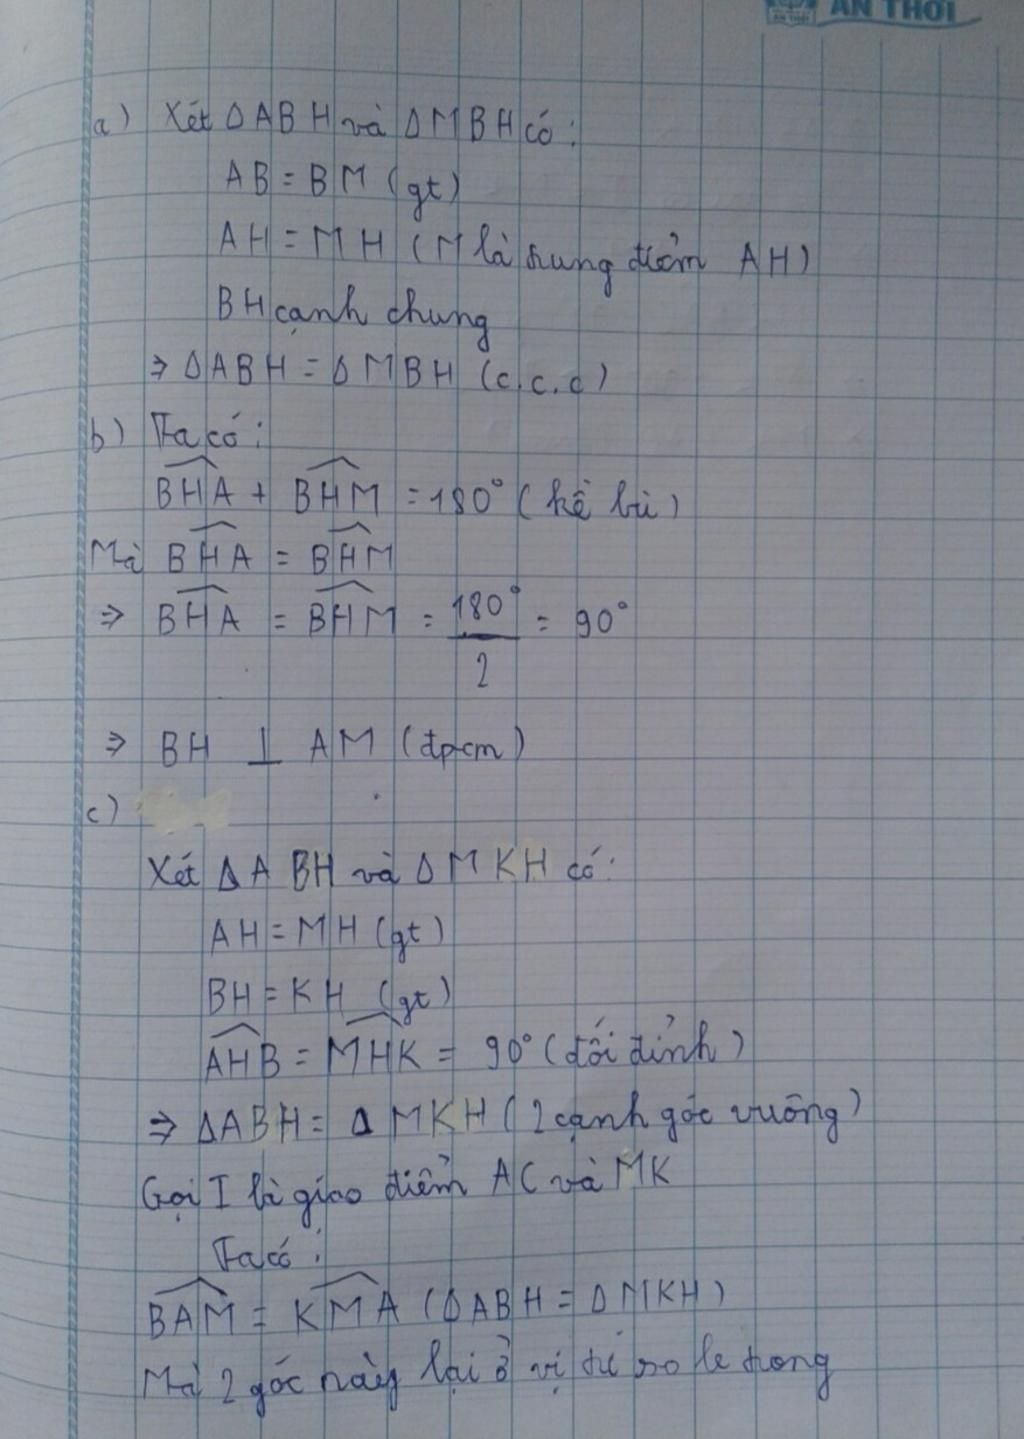 AN THỚI
a) Xét ΔABH và ΔMBH có:
AB = BM (gt)
AH = MH (M là trung điểm AH)
BH cạnh chung
⇒ ΔABH = ΔMBH (c.c.c)
b) Ta có:
$\widehat{BHA}$ + $\widehat{BHM}$ = 180° (kề bù)
Mà $\widehat{BHA}$ = $\widehat{BHM}$
⇒ $\widehat{BHA}$ = $\widehat{BHM}$ = $\frac{180°}{2}$ = 90°
⇒ BH ⊥ AM (đpcm)
c)
Xét ΔABH và ΔMKH có:
AH = MH (gt)
BH = KH (gt)
$\widehat{AHB}$ = $\widehat{MHK}$ = 90° (đối đỉnh)
⇒ ΔABH = ΔMKH (2 cạnh góc vuông)
Gọi I là giao điểm AC và MK
Ta có:
$\widehat{BAM}$ = $\widehat{KMA}$ (ΔABH = ΔMKH)
Mà 2 góc này lại ở vị trí so le trong